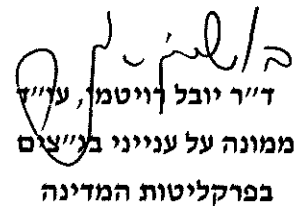 ד״ר יובל רויטמן, עו״ד
ממונה על ענייני בג״צים
בפרקליטות המדינה